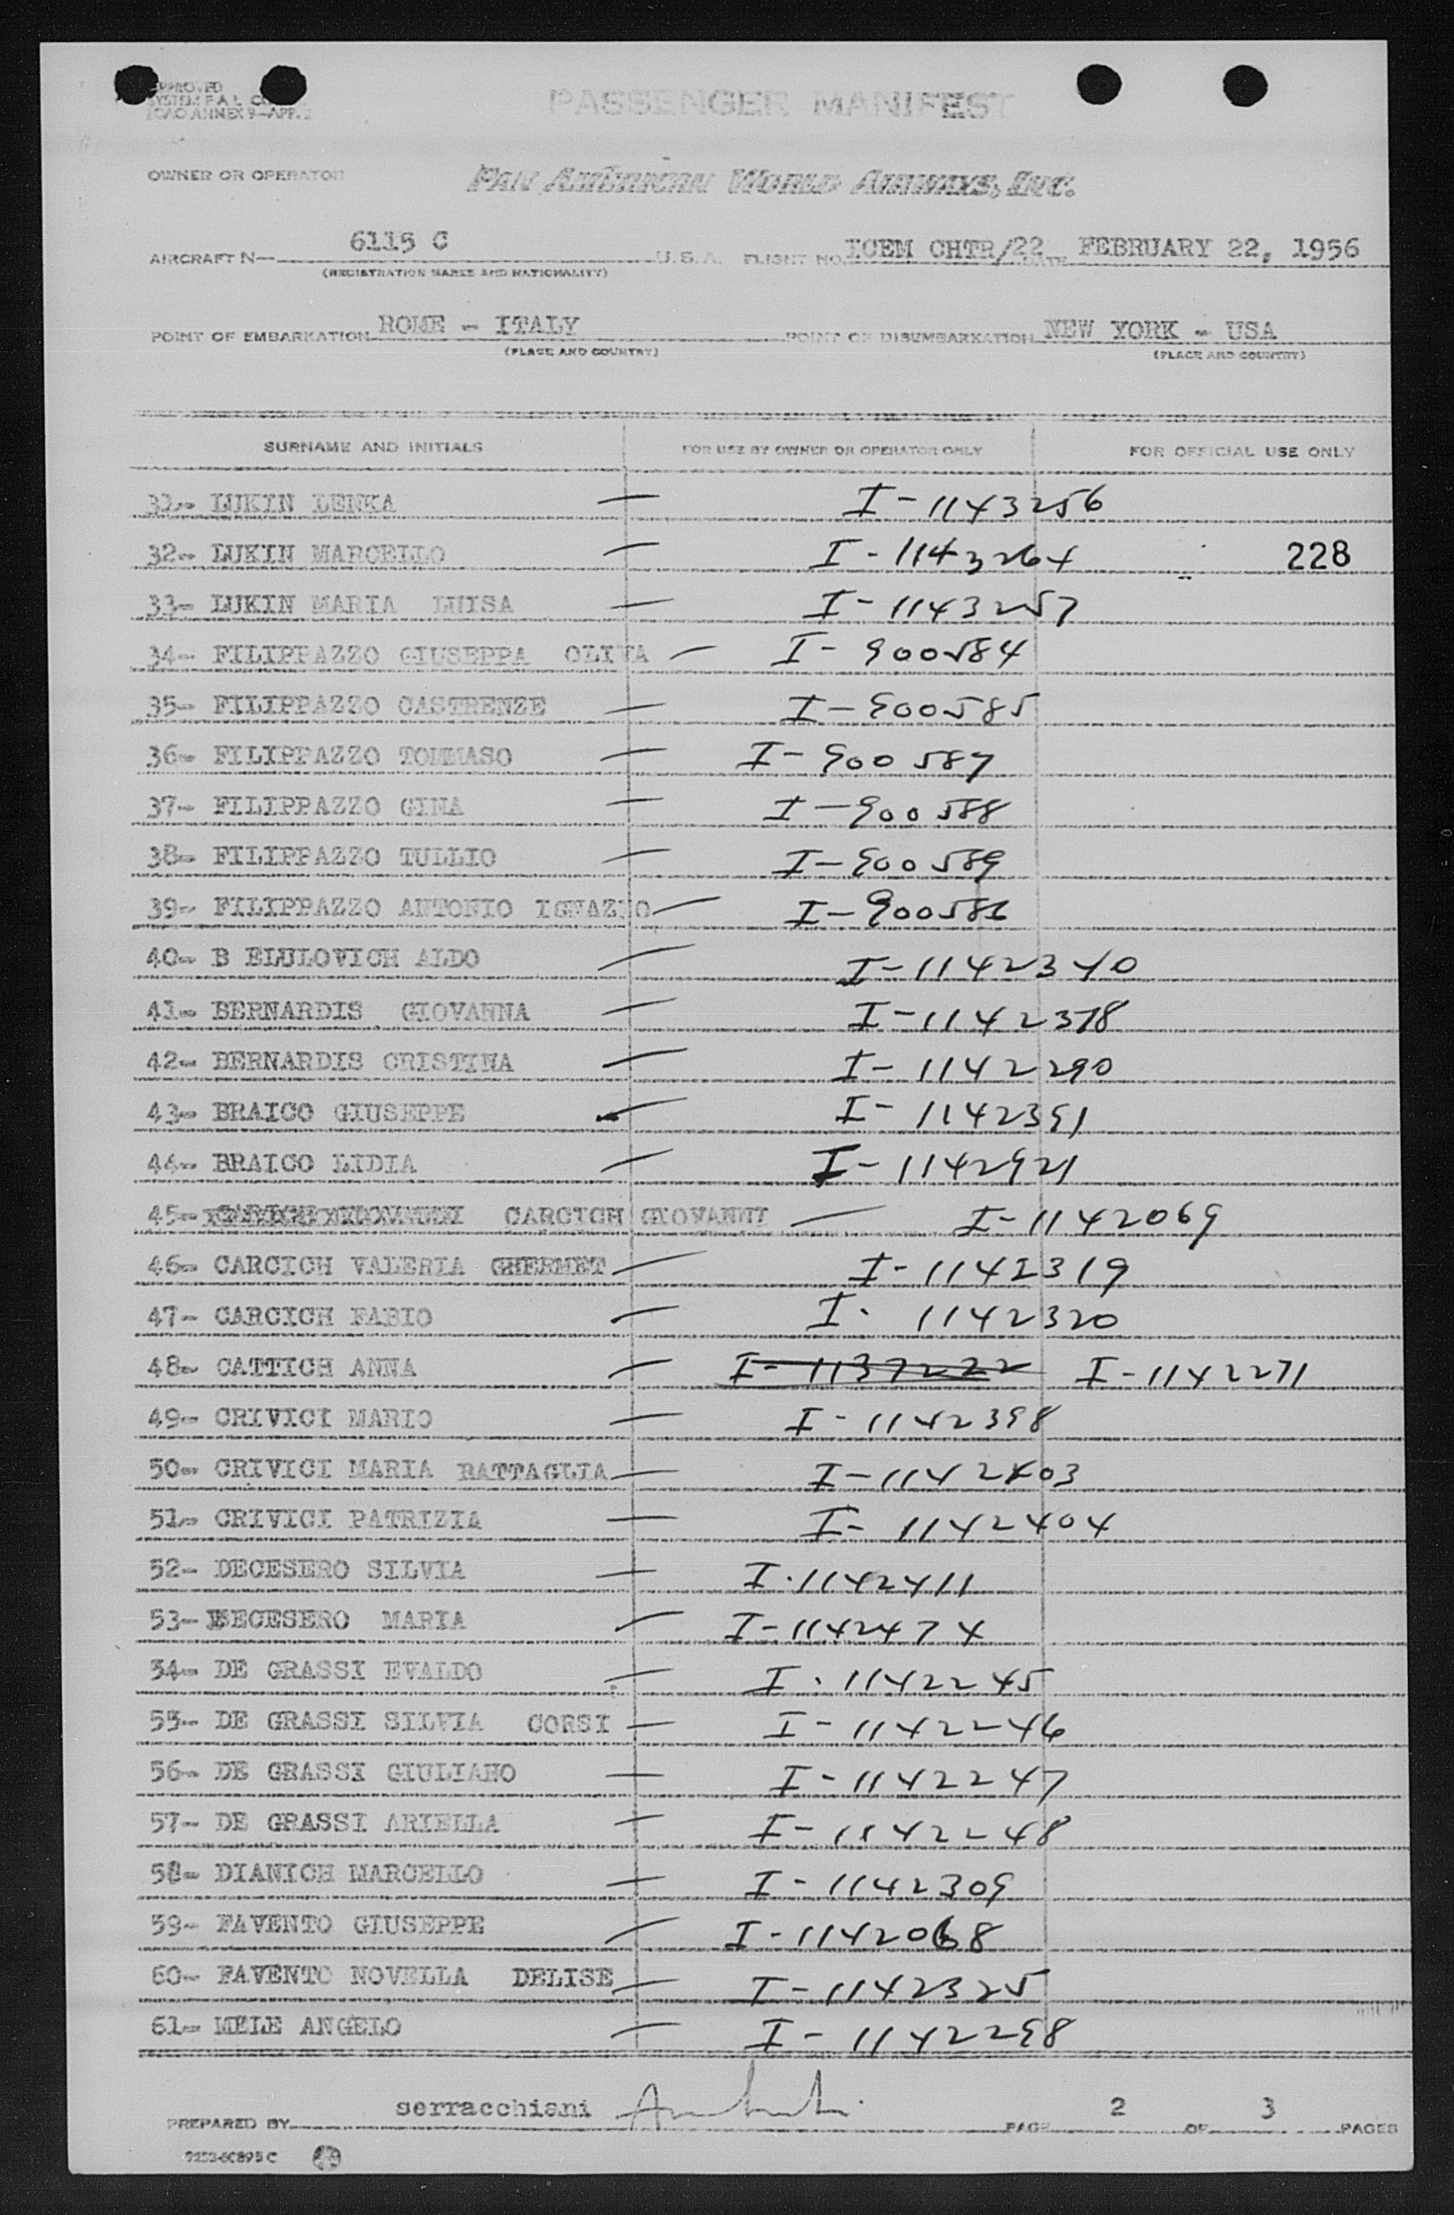 APPROVED
SYSTEM F.A.L. CO
ICAO ANNEX 9-APP. 2
PASSENGER MANIFEST
OWNER OR OPERATOR PAN AMERICAN WORLD AIRWAYS, INC.
AIRCRAFT N- 6115 C U.S.A. FLIGHT NO. ICEM CHTR/22 DATE FEBRUARY 22, 1956
(REGISTRATION MARKS AND NATIONALITY)
POINT OF EMBARKATION ROME - ITALY POINT OF DISEMBARKATION NEW YORK - USA
(PLACE AND COUNTRY) (PLACE AND COUNTRY)
SURNAME AND INITIALS FOR USE BY OWNER OR OPERATOR ONLY FOR OFFICIAL USE ONLY
31- LUKIN LENKA — I-1143256
32- LUKIN MARCELLO — I-1143264 228
33- LUKIN MARIA LUISA — I-1143257
34- FILIPPAZZO GIUSEPPA OLIVA — I-900584
35- FILIPPAZZO CASTRENZE — I-900585
36- FILIPPAZZO TOMMASO — I-900587
37- FILIPPAZZO GINA — I-900588
38- FILIPPAZZO TULLIO — I-900589
39- FILIPPAZZO ANTONIO IGNAZIO — I-900586
40- B ELULOVICH ALDO — I-1142340
41- BERNARDIS GIOVANNA — I-1142378
42- BERNARDIS CRISTINA — I-1142290
43- BRAICO GIUSEPPE — I-1142391
44- BRAICO LIDIA — I-1142921
45- CARCICH GIOVANNI — I-1142069
46- CARCICH VALERIA GHERMET — I-1142319
47- CARCICH FABIO — I-1142320
48- CATTICH ANNA — I-1137222 I-1142271
49- CRIVICI MARIO — I-1142398
50- CRIVICI MARIA BATTAGLIA — I-1142403
51- CRIVICI PATRIZIA — I-1142404
52- DECESERO SILVIA — I-1142411
53- DECESERO MARIA — I-1142474
54- DE GRASSI EVALDO — I-1142245
55- DE GRASSI SILVIA CORSI — I-1142246
56- DE GRASSI GIULIANO — I-1142247
57- DE GRASSI ARIELLA — I-1142248
58- DIANICH MARCELLO — I-1142309
59- FAVENTO GIUSEPPE — I-1142068
60- FAVENTO NOVELLA DELISE — I-1142325
61- MELE ANGELO — I-1142298
PREPARED BY serracchiani PAGE 2 OF 3 PAGES